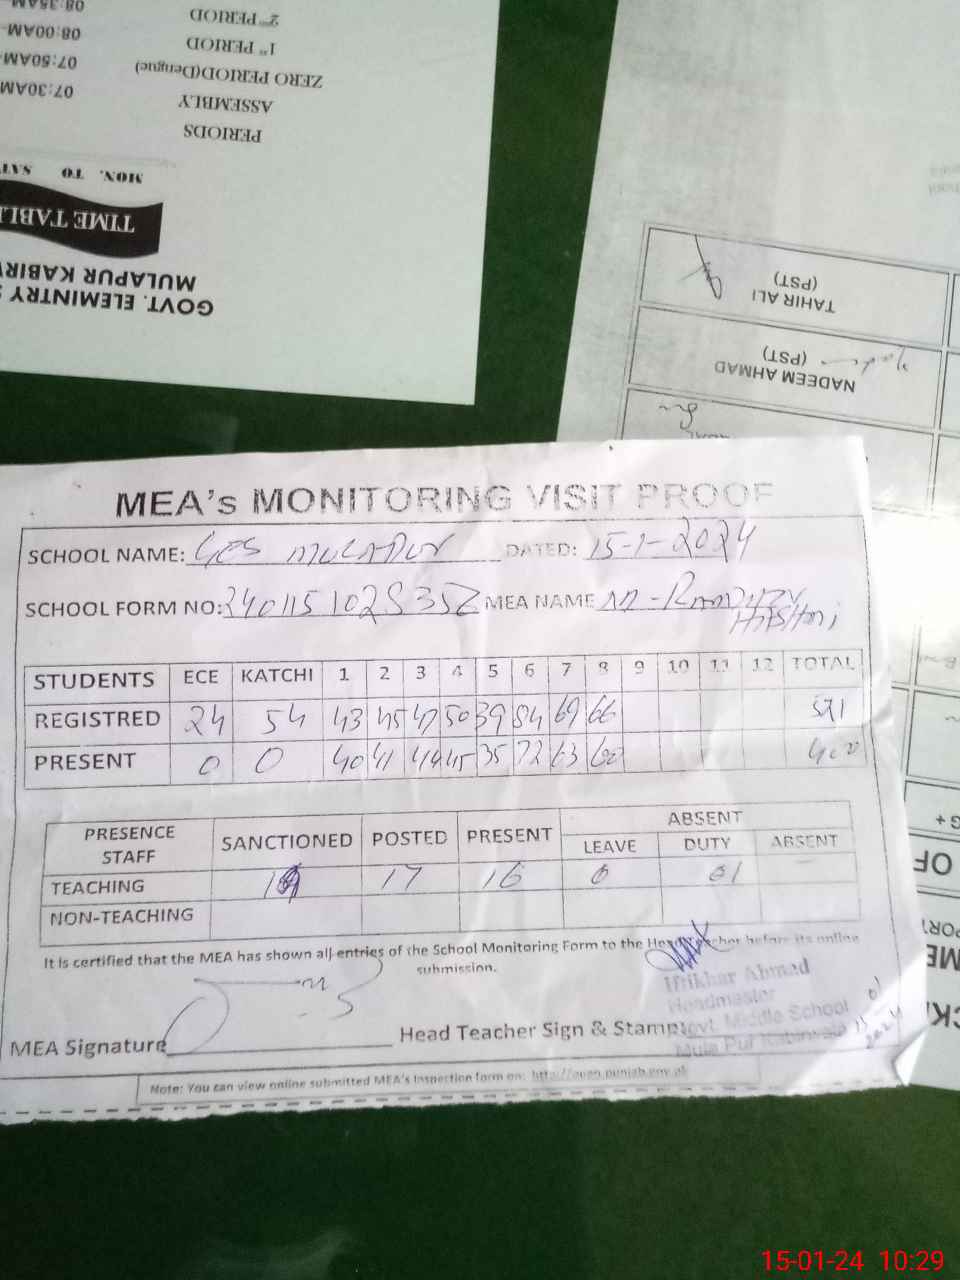 MEA's MONITORING VISIT PROOF
SCHOOL NAME: GES MULAPUR DATED: 15-1-2024
SCHOOL FORM NO: MEA NAME
STUDENTS ECE KATCHI 1 2 3 4 5 6 7 8 9 10 11 12 TOTAL
REGISTRED 24 54 43 45 47 50 39 84 69 66 521
PRESENT 0 0 40 41 44 45 35 72 63 60 400
PRESENCE STAFF SANCTIONED POSTED PRESENT ABSENT
LEAVE DUTY ABSENT
TEACHING 17 16 0 01
NON-TEACHING
It is certified that the MEA has shown all entries of the School Monitoring Form to the Head Teacher before its online
submission.
Iftikhar Ahmad
Headmaster
Govt. Middle School
Mula Pur Kabirwala
MEA Signature Head Teacher Sign & Stamp:
Note: You can view online submitted MEA's Inspection form on:
GOVT. ELEMINTRY
MULAPUR
TIME TABLE
MON. TO SAT
PERIODS
ASSEMBLY 07:30AM
ZERO PERIOD(Dengue) 07:50AM
1st PERIOD 08:00AM
2nd PERIOD 08:35AM
NADEEM AHMAD
(PST)
TAHIR ALI
(PST)
15-01-24 10:29